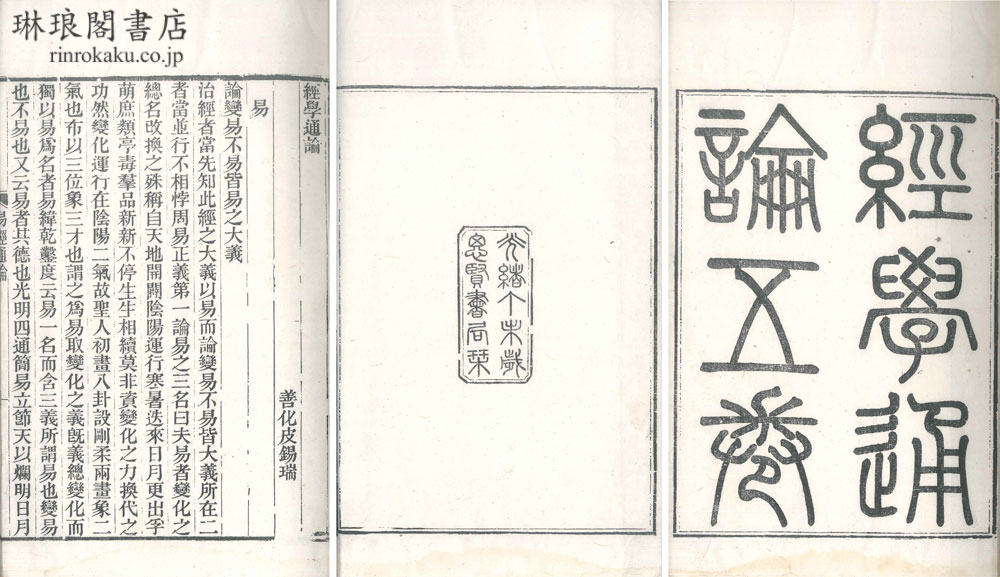 琳琅閣書店
rinrokaku.co.jp
經學通
論五卷
光緒丁未歲
思賢書局栞
經學通論
善化皮錫瑞
易
論變易不易皆易之大義
治經者當先知此經之大義以易而論變易不易皆大義所在二
者當並行不相悖周易正義第一論易之三名曰夫易者變化之
總名改換之殊稱自天地開闢陰陽運行寒暑迭來日月更出孚
萌庶類亭毒羣品新新不停生生相續莫非資變化之力換代之
功然變化運行在陰陽二氣故聖人初畫八卦設剛柔兩畫象二
氣也布以三位象三才也謂之爲易取變化之義旣義總變化而
獨以易爲名者易緯乾鑿度云易一名而含三義所謂易也變易
也不易也又云易者其德也光明四通簡易立節天以爛明日月
易經通論